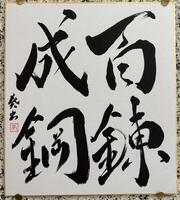 百錬
成鋼